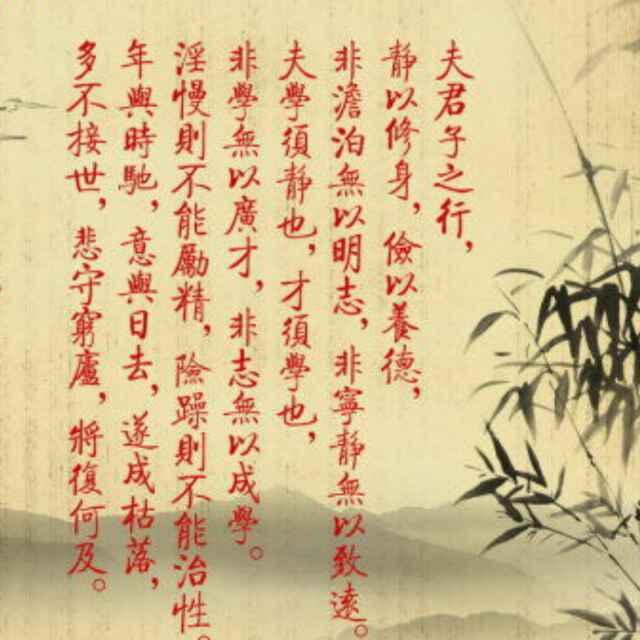 夫君子之行，
静以修身，儉以養德，
非澹泊無以明志，非寧静無以致遠。
夫學須静也，才須學也，
非學無以廣才，非志無以成學。
淫慢則不能勵精，險躁則不能治性。
年與時馳，意與日去，遂成枯落，
多不接世，悲守窮廬，將復何及。